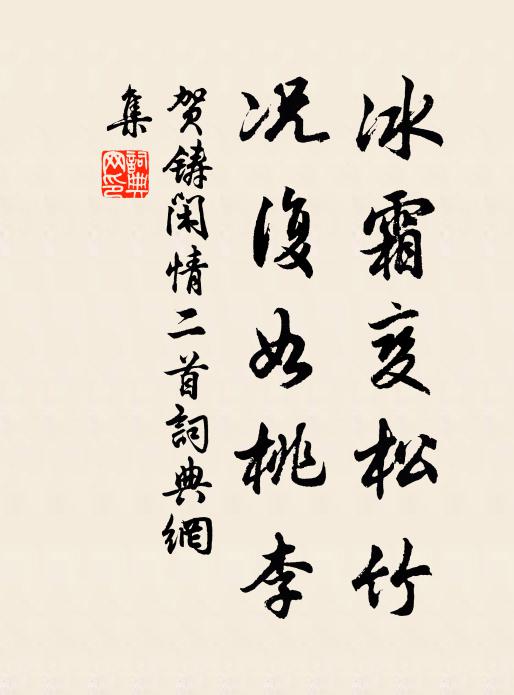 冰霜变松竹
况復如桃李
贺铸闲情二首詞典網
集
詞典網印